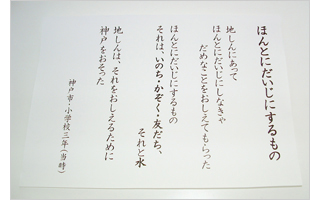 ほんとにだいじにするもの
地しんにあって
ほんとにだいじにしなきゃ
だめなことをおしえてもらった
ほんとにだいじにするもの
それは、いのち・かぞく・友だち、
それと水
地しんは、それをおしえるために
神戸をおそった
神戸市・小学校三年(当時)